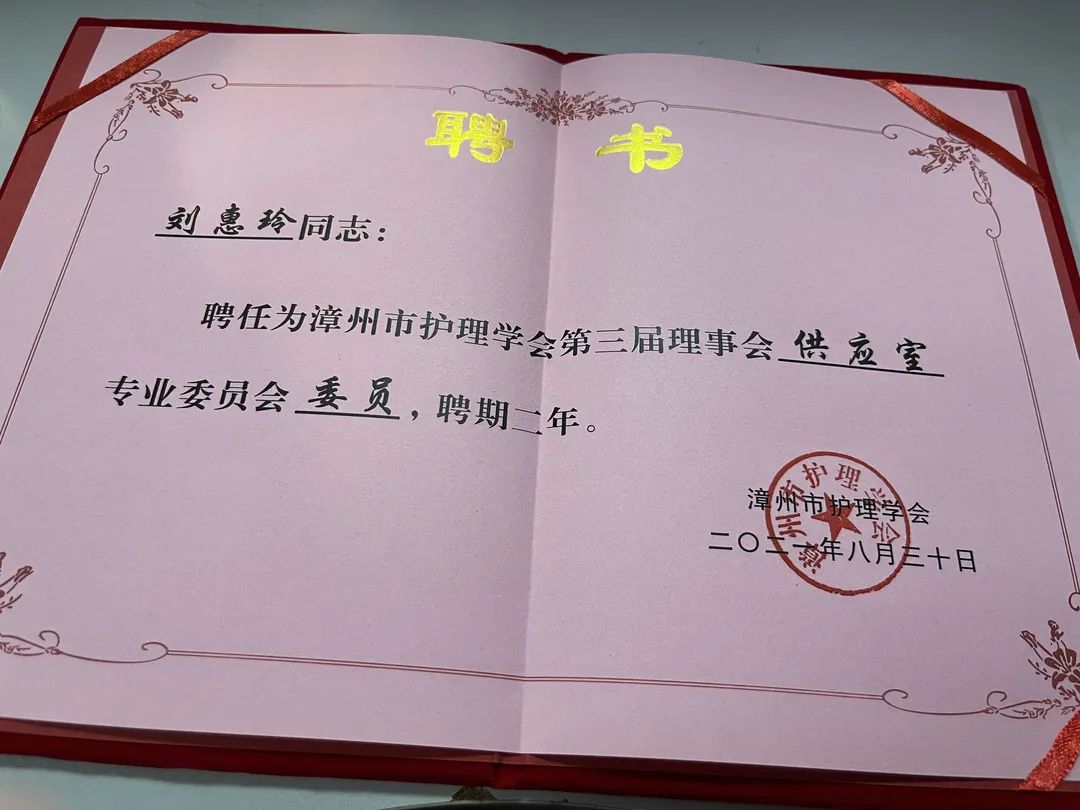 聘 书
刘惠玲同志：
聘任为漳州市护理学会第三届理事会供应室
专业委员会委员，聘期二年。
漳州市护理学会
漳州市护理学会
二〇二一年八月三十日